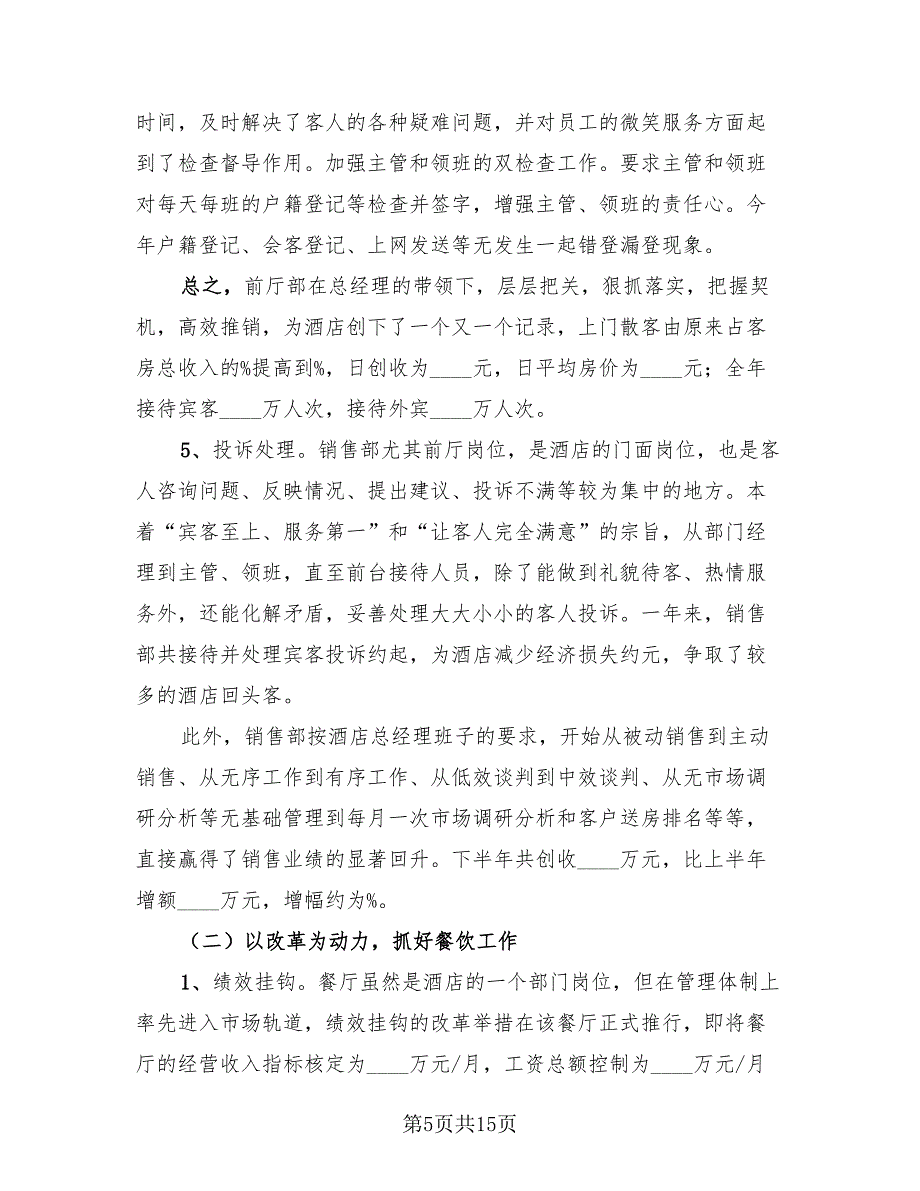 时间，及时解决了客人的各种疑难问题，并对员工的微笑服务方面起
到了检查督导作用。加强主管和领班的双检查工作。要求主管和领班
对每天每班的户籍登记等检查并签字，增强主管、领班的责任心。今
年户籍登记、会客登记、上网发送等无发生一起错登漏登现象。
总之，前厅部在总经理的带领下，层层把关，狠抓落实，把握契
机，高效推销，为酒店创下了一个又一个记录，上门散客由原来占客
房总收入的%提高到%，日创收为____元，日平均房价为____元；全年
接待宾客____万人次，接待外宾____万人次。
5、投诉处理。销售部尤其前厅岗位，是酒店的门面岗位，也是客
人咨询问题、反映情况、提出建议、投诉不满等较为集中的地方。本
着“宾客至上、服务第一”和“让客人完全满意”的宗旨，从部门经
理到主管、领班，直至前台接待人员，除了能做到礼貌待客、热情服
务外，还能化解矛盾，妥善处理大大小小的客人投诉。一年来，销售
部共接待并处理宾客投诉约起，为酒店减少经济损失约元，争取了较
多的酒店回头客。
此外，销售部按酒店总经理班子的要求，开始从被动销售到主动
销售、从无序工作到有序工作、从低效谈判到中效谈判、从无市场调
研分析等无基础管理到每月一次市场调研分析和客户送房排名等等，
直接赢得了销售业绩的显著回升。下半年共创收____万元，比上半年
增额____万元，增幅约为%。
（二）以改革为动力，抓好餐饮工作
1、绩效挂钩。餐厅虽然是酒店的一个部门岗位，但在管理体制上
率先进入市场轨道，绩效挂钩的改革举措在该餐厅正式推行，即将餐
厅的经营收入指标核定为____万元/月，工资总额控制为____万元/月
第5页共15页